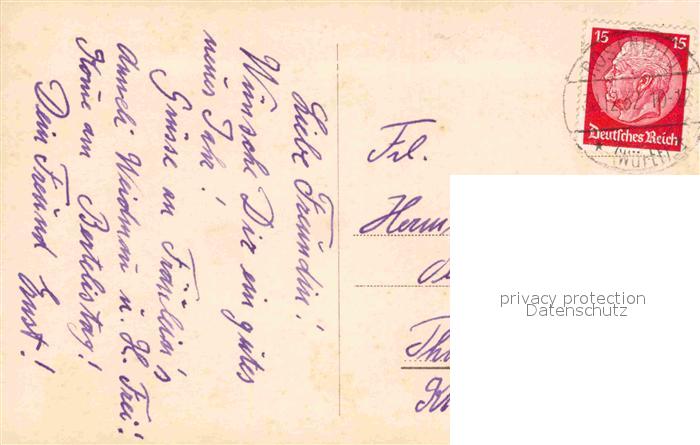 Liebe Freundin!
Wünsche Dir ein gutes
neues Jahr!
Grüsse an Fräulein's
Anneli Weidmann u. H. Frei!
Kome am Bertelistag!
Dein Freund Ernst!
Frl.
Herm
Th
15 15
Deutsches Reich
privacy protection
Datenschutz